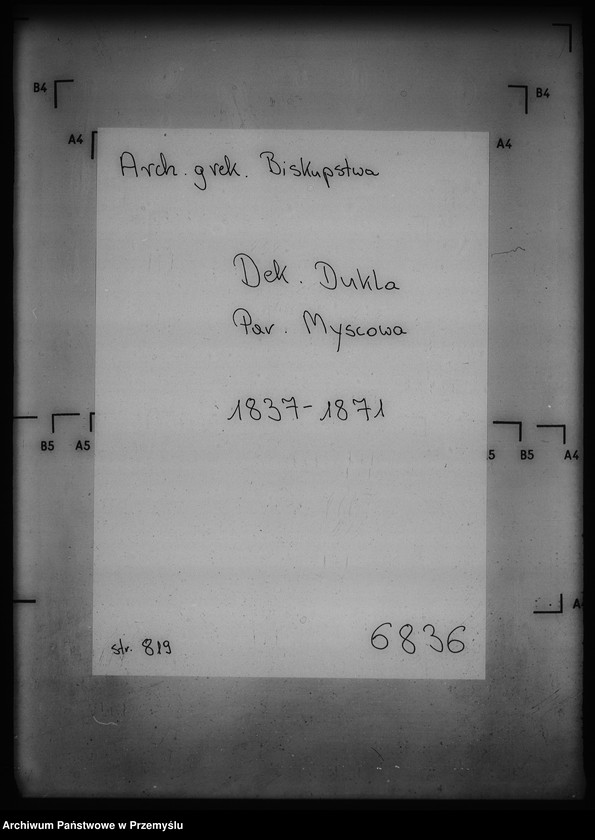 B4
B4
A4
A4
Arch. grek. Biskupstwa
Dek. Dukla
Par. Myscowa
1837-1871
B5
A5
5
B5
A4
A
str. 819
6836
Archiwum Państwowe w Przemyślu